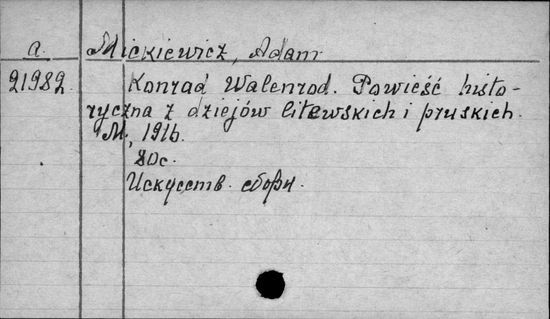 a. Mickiewicz, Adam
21982. Konrad Walenrod. Powieść histo-
ryczna z dziejów litewskich i pruskich.
M, 1916.
80c.
Искусств. сборн.